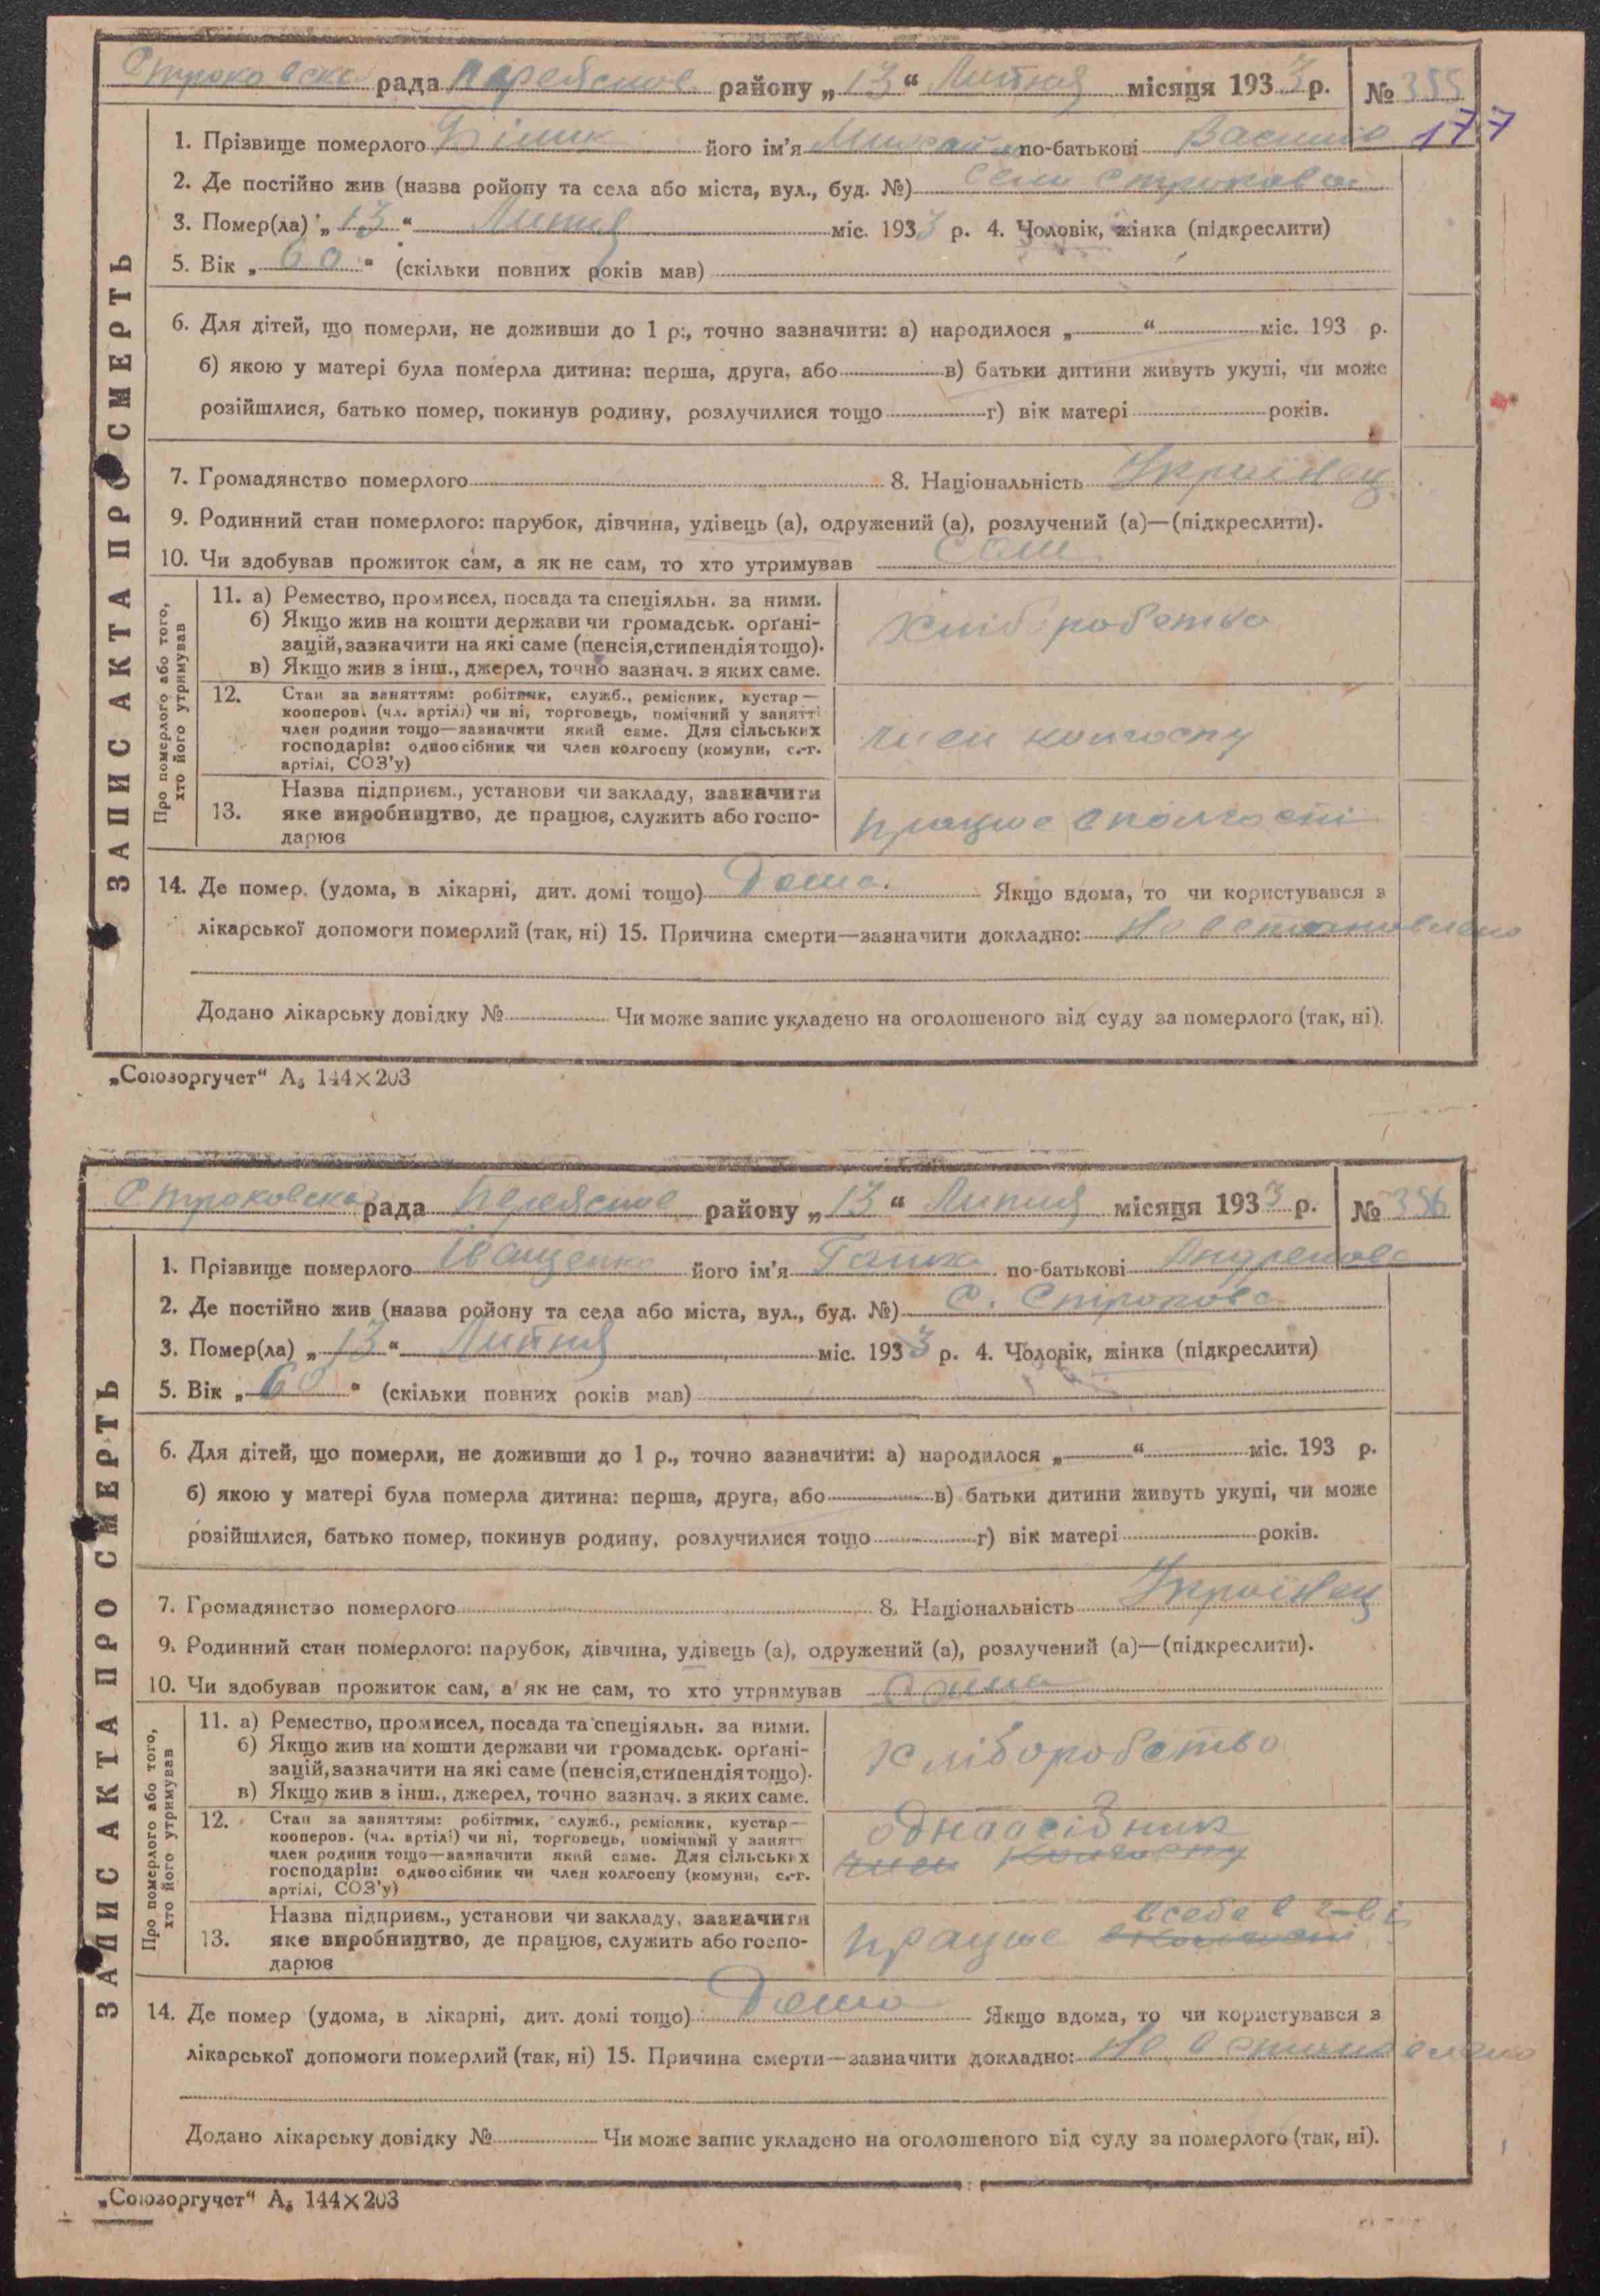 Строковска рада Переяслов. району „13“ Липня місяця 1933 р. № 355
177
1. Прізвище померлого Білик його ім'я Михайло по-батькові Василів
2. Де постійно жив (назва ройону та села або міста, вул., буд. №) село Строкова
3. Помер(ла) „13“ Липня міс. 1933 р. 4. Чоловік, жінка (підкреслити)
5. Вік „60“ (скільки повних років мав)
6. Для дітей, що померли, не доживши до 1 р., точно зазначити: а) народилося „ “ міс. 193 р.
б) якою у матері була померла дитина: перша, друга, або в) батьки дитини живуть укупі, чи може
розійшлися, батько помер, покинув родину, розлучилися тощо г) вік матері років.
7. Громадянство померлого 8. Національність Українец
9. Родинний стан померлого: парубок, дівчина, удівець (а), одружений (а), розлучений (а)—(підкреслити).
10. Чи здобував прожиток сам, а як не сам, то хто утримував сам
ЗАПИС АКТА ПРО СМЕРТЬ
Про померлого або того, хто його утримував
11. а) Ремество, промисел, посада та спеціяльн. за ними.
б) Якщо жив на кошти держави чи громадськ. орґані-
зацій, зазначити на які саме (пенсія, стипендія тощо).
в) Якщо жив з інш., джерел, точно зазнач. з яких саме.
Хліборобство
12. Стан за заняттям: робітник, служб., ремісник, кустар—
кооперов. (чл. артілі) чи ні, торговець, помічний у занятті
член родини тощо—зазначити який саме. Для сільських
господарів: одноосібник чи член колгоспу (комуни, с.-г.
артілі, СОЗ'у)
член колгоспу
13. Назва підприєм., установи чи закладу, зазначити
яке виробництво, де працює, служить або госпо-
дарює
працює в колгоспі
14. Де помер. (удома, в лікарні, дит. домі тощо) Дома. Якщо вдома, то чи користувався з
лікарської допомоги померлий (так, ні) 15. Причина смерти—зазначити докладно: Не встановлено
Додано лікарську довідку № Чи може запис укладено на оголошеного від суду за померлого (так, ні).
„Союзоргучет“ А₅ 144×203
Строковска рада Переяслов. району „13“ Липня місяця 1933 р. № 356
1. Прізвище померлого Іващенко його ім'я Ганна по-батькові Андреєова
2. Де постійно жив (назва ройону та села або міста, вул., буд. №) С. Строкова
3. Помер(ла) „13“ Липня міс. 1933 р. 4. Чоловік, жінка (підкреслити)
5. Вік „60“ (скільки повних років мав)
6. Для дітей, що померли, не доживши до 1 р., точно зазначити: а) народилося „ “ міс. 193 р.
б) якою у матері була померла дитина: перша, друга, або в) батьки дитини живуть укупі, чи може
розійшлися, батько помер, покинув родину, розлучилися тощо г) вік матері років.
7. Громадянство померлого 8. Національність Українец
9. Родинний стан померлого: парубок, дівчина, удівець (а), одружений (а), розлучений (а)—(підкреслити).
10. Чи здобував прожиток сам, а як не сам, то хто утримував сама
ЗАПИС АКТА ПРО СМЕРТЬ
Про померлого або того, хто його утримував
11. а) Ремество, промисел, посада та спеціяльн. за ними.
б) Якщо жив на кошти держави чи громадськ. орґані-
зацій, зазначити на які саме (пенсія, стипендія тощо).
в) Якщо жив з інш., джерел, точно зазнач. з яких саме.
Хліборобство
12. Стан за заняттям: робітник, служб., ремісник, кустар—
кооперов. (чл. артілі) чи ні, торговець, помічний у занятт
член родини тощо—зазначити який саме. Для сільських
господарів: одноосібник чи член колгоспу (комуни, с.-г.
артілі, СОЗ'у)
одноосібник
член колгоспу
13. Назва підприєм., установи чи закладу, зазначити
яке виробництво, де працює, служить або госпо-
дарює
всебе в г-ві
працює в колгоспі
14. Де помер (удома, в лікарні, дит. домі тощо) Дома Якщо вдома, то чи користувався з
лікарської допомоги померлий (так, ні) 15. Причина смерти—зазначити докладно: Не встановлено
Додано лікарську довідку № Чи може запис укладено на оголошеного від суду за померлого (так, ні).
„Союзоргучет“ А₅ 144×203